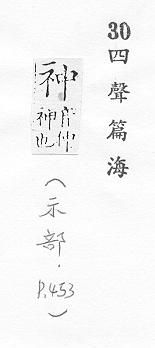 30四聲篇海
祌音仲
神也
（示部．P.453）